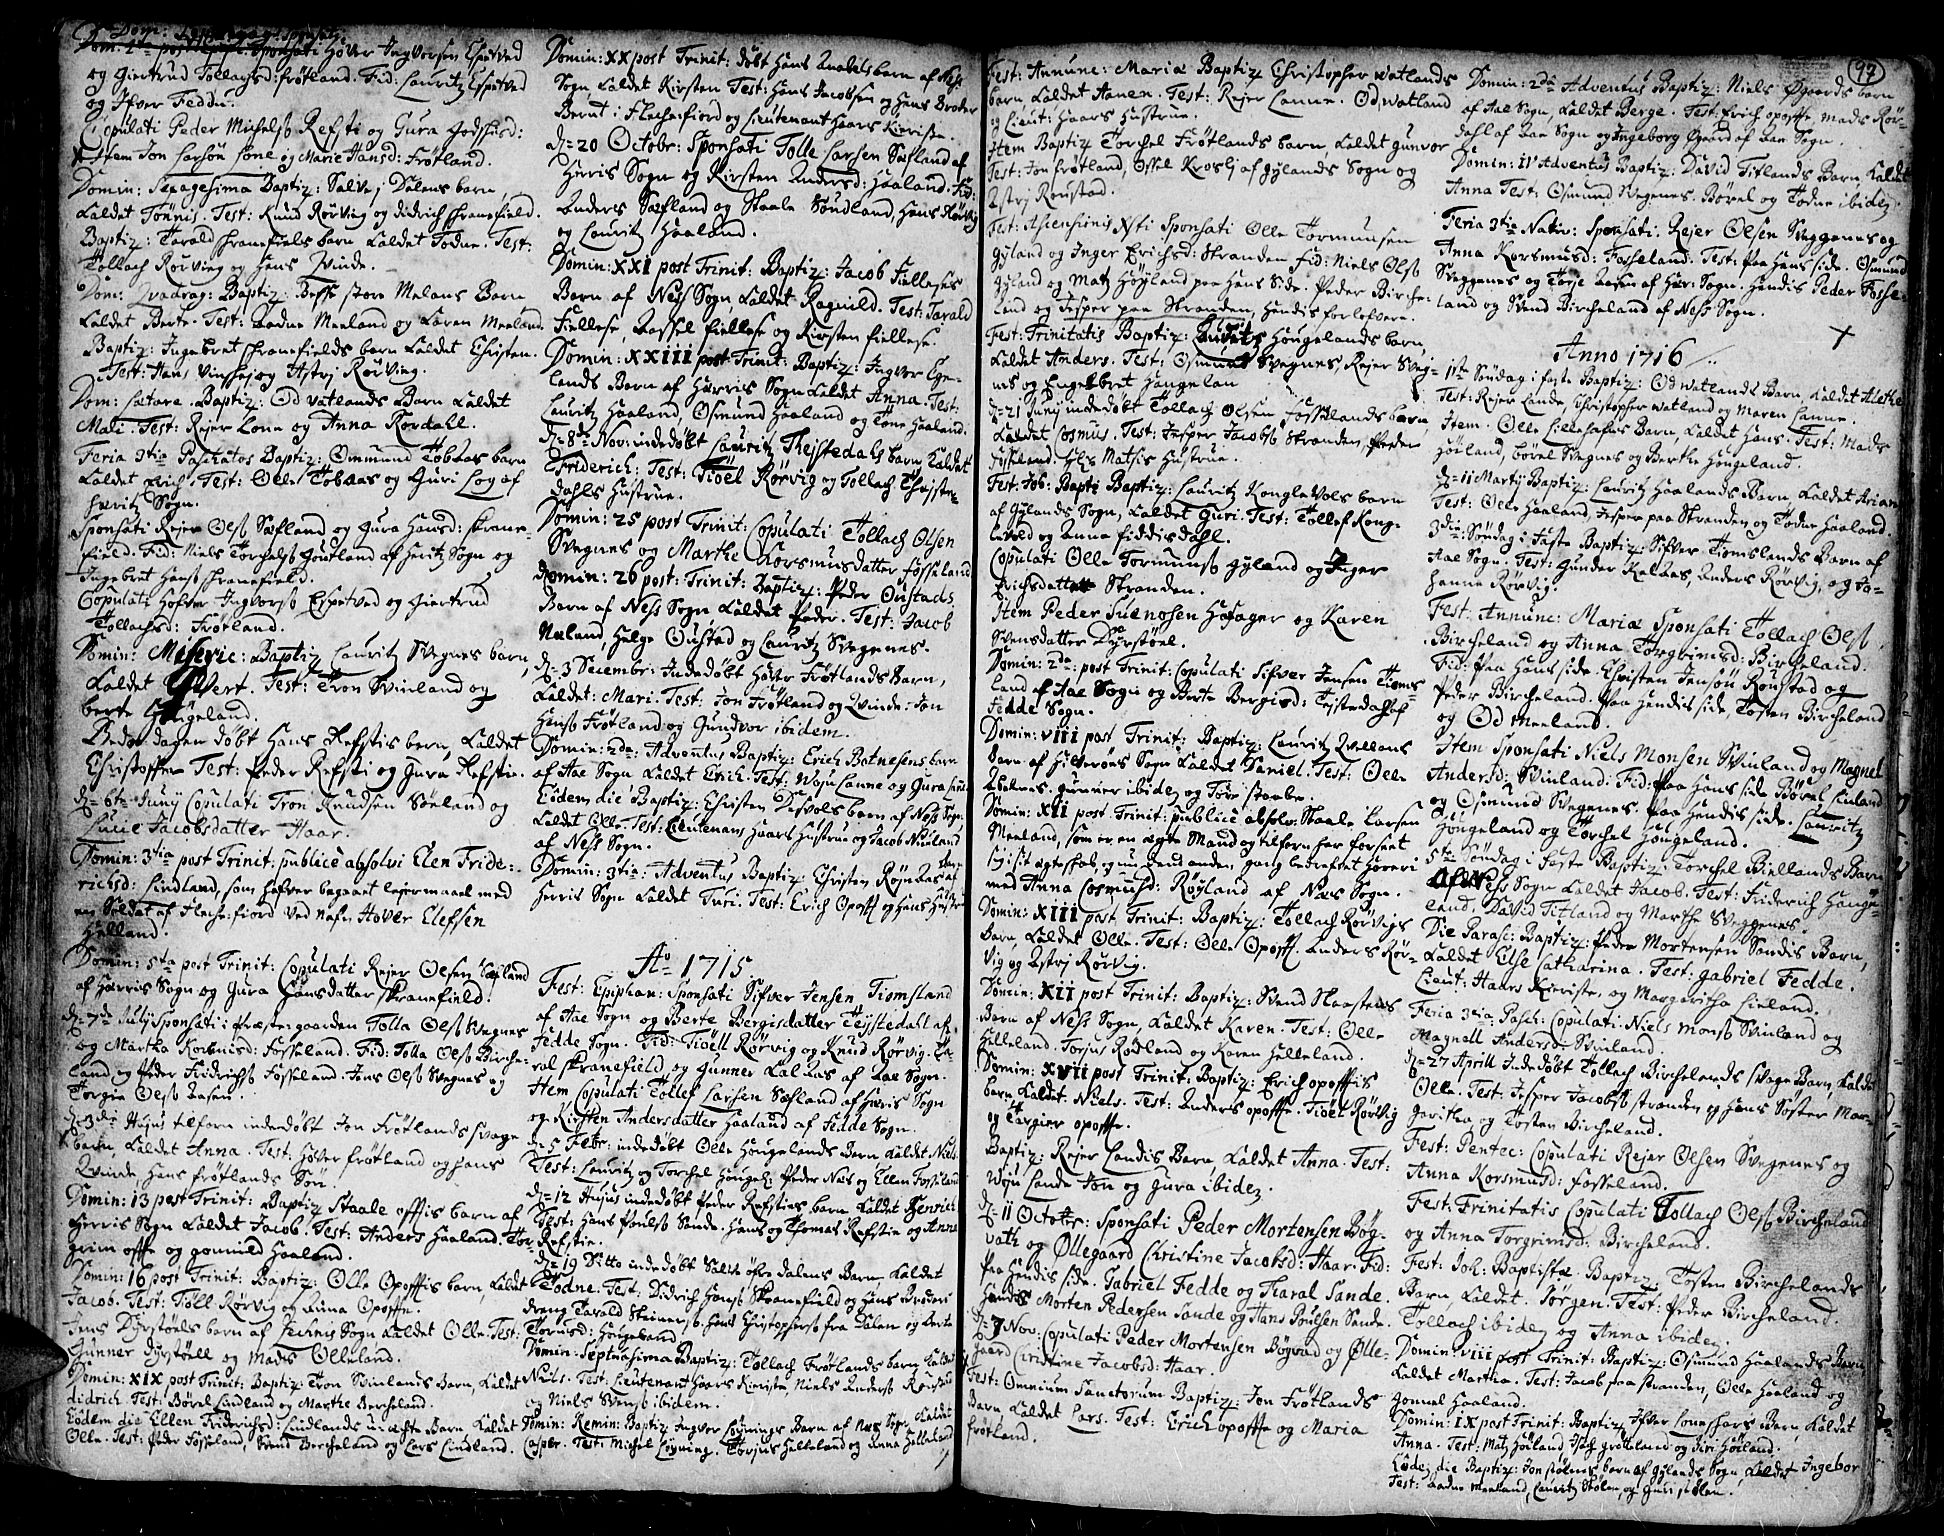 Dom: 2da post Epiph: Sponsati Höver Ingvorsen Espetved
og Giertrud Tollagsd: Frötland. Fid: Lauritz Espetved
og Ifver Fedde.
Copulati Peder Michelsß Refsti og Gura
Item Jon Larsön Lone og Marie Hansd: Frötland.
Domin: Sexagesima Baptiz: Salve i Dalens barn,
Kaldet Tönnis. Test: Knud Rörvig og Didrich Skranefield.
Baptiz: Tarald Skranefiels barn Kaldet Todne. Test:
Tollach Rörvig og Hans Qvinde.
Dom: Qvadrag: Baptiz: store Melans Barn
Kaldet Berte. Test: Aadne Meeland og Karen Meeland.
Baptiz: Ingebret Skranefields barn Kaldet Christen.
Test: Hans og Astrj Rörving.
Dom: Lætare. Baptiz: Od Vatlands Barn Kaldet
Mali. Test: Rejer Lone og Anna Rördahl.
Feria 3tia Paschatos Baptiz: Ommund Tobaas barn
Kaldet Erich. Test: Olle Tobaas og Guri Log af
Herritz Sogn.
Sponsati Rejer Olsß Sæfland og Gura Hansd: Skrane-
field. Fid: Niels Torchelsß Goutland af Heritz Sogn og
Ingebret Hansß Skranefield.
Copulati Höfver Ingvorsß Espetved og Giertrud
Tollachsd: Frötland.
Domin: Miseric: Baptiz Lauritz Svegnes barn,
Kaldet Test: Tron Svinland og
berte Höugeland.
Bededagen döbt Hans Refstis barn, Kaldet
Christoffer Test: Peder Refsti og Gura Refstie.
d= 6te Junij Copulati Tron Knudsen Söeland og
Lucie Jacobsdatter Haar.
Domin: 3tia post Trinit: publicè absolvi Elen Fride-
richsd: Lindland, som hafver begaaet lejermaal med
en Soldat af Fleche-fiord ved nafn, Hover Elefsen
Helland.
Domin: 5ta post Trinit: Copulati Rejer Olsen Sæfland
af Hærris Sogn og Gura Hansdatter Skranefield.
d= 7de Julij Sponsati i Præstegaarden Tolla Olsß Svegnes
og Martha Korsmusd: Fosseland. Fid: Tolla Olsß Birche-
land og Peder Fridrichsß Fosseland. Jens Olsß Svegnes og
Torgie Olsß Aasen.
d= 3die Hujus tilforn indedöbt Jon Frötlands svage
barn, Kaldet Anna. Test: Höver Frötland og hans
Qvinde, Hans Frötlands Sön.
Domin: 13 post Trinit: Baptiz Staale offtis barn af
Herris Sogn Kaldet Jacob. Test: Anders Haaland. Tor-
grim offte og Gonnild Haaland.
Domin: 16 post Trinit: Baptiz: Olle Opofftis barn, Kaldet
Jacob. Test: Tiöll Rörvig og Anna Opoffte.
Jens Dyrstöels barn af Sogn Kaldet Olle. Test:
Gunner Dyrstöell og Mads Olleland.
Domin: XIX post Trinit: Baptiz: Tron Svinlands Barn, Kaldet
didrich. Test: Börel Lindland og Marthe Bercheland.
Eödem die Ellen Fridrichsd: Lindlands u-ægte Barn Kaldet
Olle. Test: Peder Fosseland, Svend Bercheland og Lars Lindland.
Domin: XX post Trinit: döbt Hans barn af Ness
Sogn Kaldet Kirsten Test: Hans Jacobsen og Hans Broder
Berut i Fleche-fiord og Lieutenant Haars Kieriste.
d= 20 Octobr: Sponsati Tolle Larsen Sæfland af
Herris Sogn og Kirsten Andersd: Haaland. Fid:
Anders Sæfland og Staale Söndland, Hans Rörvig
og Lauritz Haaland.
Domin: XXI post Trinit: Baptiz: Jacob Fielleses
Barn af Ness Sogn Kaldet Ragnild. Test: Tarald
Fiellese, Aassel fiellese og Kirsten fiellese.
Domin: XXIII post Trinit: Baptiz: Ingvor Ege-
lands Barn af Harris Sogn Kaldet Anna. Test:
Lauritz Haaland, Osmund Haaland og Tone Haaland.
d= 8de Nov: indedöbt Lauritz Theistedahls barn Kaldet
Friderich: Test: Tiöel Rörvig og Tollach Theiste-
dahls Hustrue.
Domin: 25 post Trinit: Copulati Tollach Olsen
Svegnes og Marthe Korsmusdatter Fosseland
Domin: 26 post: Trinit: Baptiz: Peder Oustads
Barn af Ness Sogn Kaldet Peder. Test: Jacob
Næland, Helge Oustad og Lauritz Svegenes.
d= 3 Decembr: Indedöbt Höver Frötlands Barn,
Kaldet: Mari. Test: Jon Frötland og Qvinde: Jon
Hansß Frötland og Gundvor ibidem.
Domin: 2da: Adventus Baptiz: Erich Botnesens barn
af Aae Sogn Kaldet Erich. Test: Woju Lanne og Gura
Eödem die Baptiz: Christen Disvols barn af Ness Sogn
Kaldet Olle. Test: Lieutenans Haars Hustrue og Jacob Nuuland
af Ness Sogn.
Domin: 3tia: Adventus Baptiz: Christen Röynaas barn af
Herris Sogn Kaldet Turi. Test: Erich Opofft og Hans Hustru
Ao 1715
Fest: Epiphan: Sponsati Sifver Jensen Tiomsland
af Aae Sogn og Berte Bergisdatter Teystedahl af
Fedde Sogn. Fid: Tiöell Rörvig og Knud Rörvig. Ta-
ral Skranefield, og Gunner Kalaas af Aae Sogn.
Item Copulati Tollef Larsen Sæfland af Hæris Sogn
og Kirsten Andersdatter Haaland af Fedde Sogn.
d= 5 Febr: indedöbt Olle Hougelands Barn Kaldet Niels
Test: Lauritz og Torchel Hougel: Peder Nais og Ellen Fosseland
d= 12 Hujus indedöbt Peder Refsties barn Kaldet Henrich
Test: Hans Poulsß Sande. Hans og Thomas Refstie og Anna
Refstie.
d= 19 Ditto indedöbt Salve öfre dalens Barn, Kaldet
Todne. Test: Didrich Hansß Skranefield og Hans Broder
dreng Tarald Steinersß. Hans Christophersß fra Dalen og Berte
Tormusd: Hougeland.
Domin: Septuasima Baptiz: Tollach Frötlands barn Kaldet
Neils. Test: Lieutenant Haars Kieriste, Niels Andersß Rörstad
og Niels Svensß ibidem.
Domin: Remin: Baptiz Ingvor Löynings Barn af Næs Sogn, Kaldet
Casper. Test: Michel Löyning. Torjus Helleland og Anna Helleland
97
Fest: Annunc: Mariæ Baptiz Christopher Watlands
barn, Kaldet Aanen. Test: Rejer Lanne. Od Watland
og Lieut: Haars Hustrue.
Item Baptiz Torchel Frötlands barn, Kaldet Gunvor
Test: Jon Frötland, Ossel Krosli af Gylands Sogn og
Astrj Rönstad.
Fest: Ascensionis Xsti Sponsati Olle Tormunsen
Gyland og Inger Erichsd: Stranden Fid: Niels Olsß
Gyland og Matz Höyland paa Hans Side. Peder Birche-
land og Jesper paa Stranden, Hendis forlofvere.
Fest: Trinitatis Baptiz: Lauritz Hougelands barn
Kaldet Anders. Test: Osmund Svegnes, Rejer Sveg-
nes og Engelbret Hougelan
d= 21 Junij indedöbt Tollach Olsen Fosselands barn
Kaldet Cosmus. Test: Jesper Jacobsß Stranden, Peder
Fosseland. Matzis Hustrue.
Fest: Joh: Bapti Baptiz: Lauritz Kongle Vols barn
af Gylands Sogn, Kaldet Guri. Test: Tollef Kong-
levold og Anna Fiddisdahl.
Copulati Olle Tormunsß Gyland og Inger
Erichsdatter Stranden.
Item Peder Suenosen Hofager og Karen
Svensdatter Dyrstöel.
Domin: 2da: post Trinit: Copulati Sifver Jensen Tioms-
land af Aae Sogn og Berte Bergisd: Teistedahl af
Fedde Sogn.
Domin: VIII post Trinit: Baptiz: Lauritz Qvellans
barn af Hitterøns Sogn Kaldet Daniel. Test: Olle
Abelnes, gunner ibidez og Tore Staabe.
Domin: XII post Trinit: publicè absolv: Staale Larsen
Meeland, som er en ægte Mand og tilforn har forseet
sig i sit ægteskab, og nu anden gang bedrefvet Horeri
med Anna Cosmusd: Röyland af Næs Sogn.
Domin: XIII post Trinit: Baptiz: Tollach Rörvigs
Barn, Kaldet Olle. Test: Olle Opoffte. Anders Rör-
vig og Astrj Rörvig.
Domin: XII post Trinit: Baptiz: Svend Haastads
Barn af Ness Sogn, Kaldet Karen. Test: Olle
Helleland. Torjus Rödland og Karen Helleland.
Domin: XVII post Trinit: Baptiz: Erich Opofftis
barn Kaldet Niels. Test: Anders opoffte. Tioel Rörvig
og Targier opoffte.
Baptiz: Rejer Landis Barn, Kaldet Anna. Test:
Woju Lande Jon og Gura ibidez.
d= 11 Octobr: Sponsati Peder Mortensen Bög-
vath og Öllegaard Christine Jacobsd: Haar. Fid:
paa Hendis side. Gabriel Fedde og Tharal Sande.
Hands Morten Pedersen Sande og Hans Poulsen Sande.
d= 7 Nov: Copulati Peder Mortensen Bögvad og Ölle-
gaard Christine Jacobsd: Haar.
Fest: Omnium Sanctorum Baptiz: Jon Frötlands
Barn Kaldet Lars. Test: Erich opoffte og Maria
Frötland.
Domin: 2da Adventus Baptiz: Niels Øgaards barn
af Aae Sogn, Kaldet Berge. Test: Erich opoffte, Mads Rör-
dahl af Aae Sogn og Ingeborg Øgaard af Aae Sogn.
Domin: IV Adventus Baptiz: David Titlands Barn Kaldet
Anna Test: Osmund Svegenes. Börel og Todne ibidez.
Feria 3tia Nativ: Sponsati. Rejer Olsen Sveggenes og
Anna Korsmusd: Fosseland: Test: Paa Hans side. Osmund
Sveggenes og Torje Aasen af Hær: Sogn. Hendis Peder Fosse-
land og Svend Bircheland af Ness Sogn.
Anno 1716
1ste Söndag i Faste Baptiz: Od Watlands Barn, Kaldet Alethe
Test: Rejer Lande, Christopher Watland og Maren Lanne.
Item. Olle Lillehafies Barn, Kaldet Hans. Test: Mads
Höiland, börel Svegnes og Berthe Hougeland.
d= 11 Martij Baptiz: Lauritz Haalands Barn Kaldet Ariam
Test: Olle Haaland, Jesper paa Stranden og Todne Haaland.
3die: Söndag i Faste Baptiz: Sifver Tiomslands Barn af
Aae Sogn. Test: Gunder Kalaas, Anders Rörvig, og Jo-
hanne Rörvig.
Fest: Annunc: Mariæ Sponsati Tollach Olsß
Bircheland og Anna Torgrimsd: Bircheland.
Fid: Paa Hans side. Christen Jensön Rönstad og
Peder Bircheland. Paa Hendis side, Tosten Bircheland
og Od Meeland.
Item Sponsati Niels Monsen Svinland og Magnel
Andersd: Svinland. Fid: Paa Hans side Börel Linland
og Osmund Svegenes. Paa Hendis side. Lauritz
Hougeland og Torchel Hougeland.
5te Söndag i Faste Baptiz Torchel Biellands Barn
af Ness Sogn Kaldet Jacob. Test: Friderich Houge-
land, David Titland og Marthe Sveggenes.
Die Parasc: Baptiz: Peder Mortensen Sandis Barn,
Kaldet Else Catharina. Test: Gabriel Fedde.
Lieut: Haars Kieriste, og Margaritha Linland.
Feria 3tia Pasch: Copulati. Niels Monsß Svinland og
Magnell Andersd: Svinland.
d= 27 Aprill Indedöbt Tollach Birchelands svage Barn, Kaldet
Olle. Test: Jesper Jacobsß Stranden og Hans Söster Mar-
garitha og Tosten Bircheland.
Fest: Pentec: Copulati Rejer Olsen Svegenes og
Anna Korsmusd: Fosseland.
Fest: Trinitatis Copulati Tollach Olsß Bircheland
og Anna Torgrimsd: Bircheland.
Fest: Joh: Baptistæ. Baptiz: Tosten Birchelands
Barn Kaldet. Sörgen. Test: Peder Bircheland.
Tollach ibidez og Anna ibidez.
Domin: VIII post Trinit: Baptiz: Osmund Haalands Barn,
Kaldet Martha. Test: Jacob paa Stranden, Olle Haaland og
Gonnel Haaland.
Domin: IX post Trinit: Baptiz, Ifver Barn, Kaldet
Anna. Test: Matz Höiland, Isach Grötteland og Siri Höiland.
Eöde, die Baptiz: Jon Stölens barn af Gylands Sogn, Kaldet Ingebor
Test: Aadne Meeland, Lauritz Stölen, og Guri Stölen.